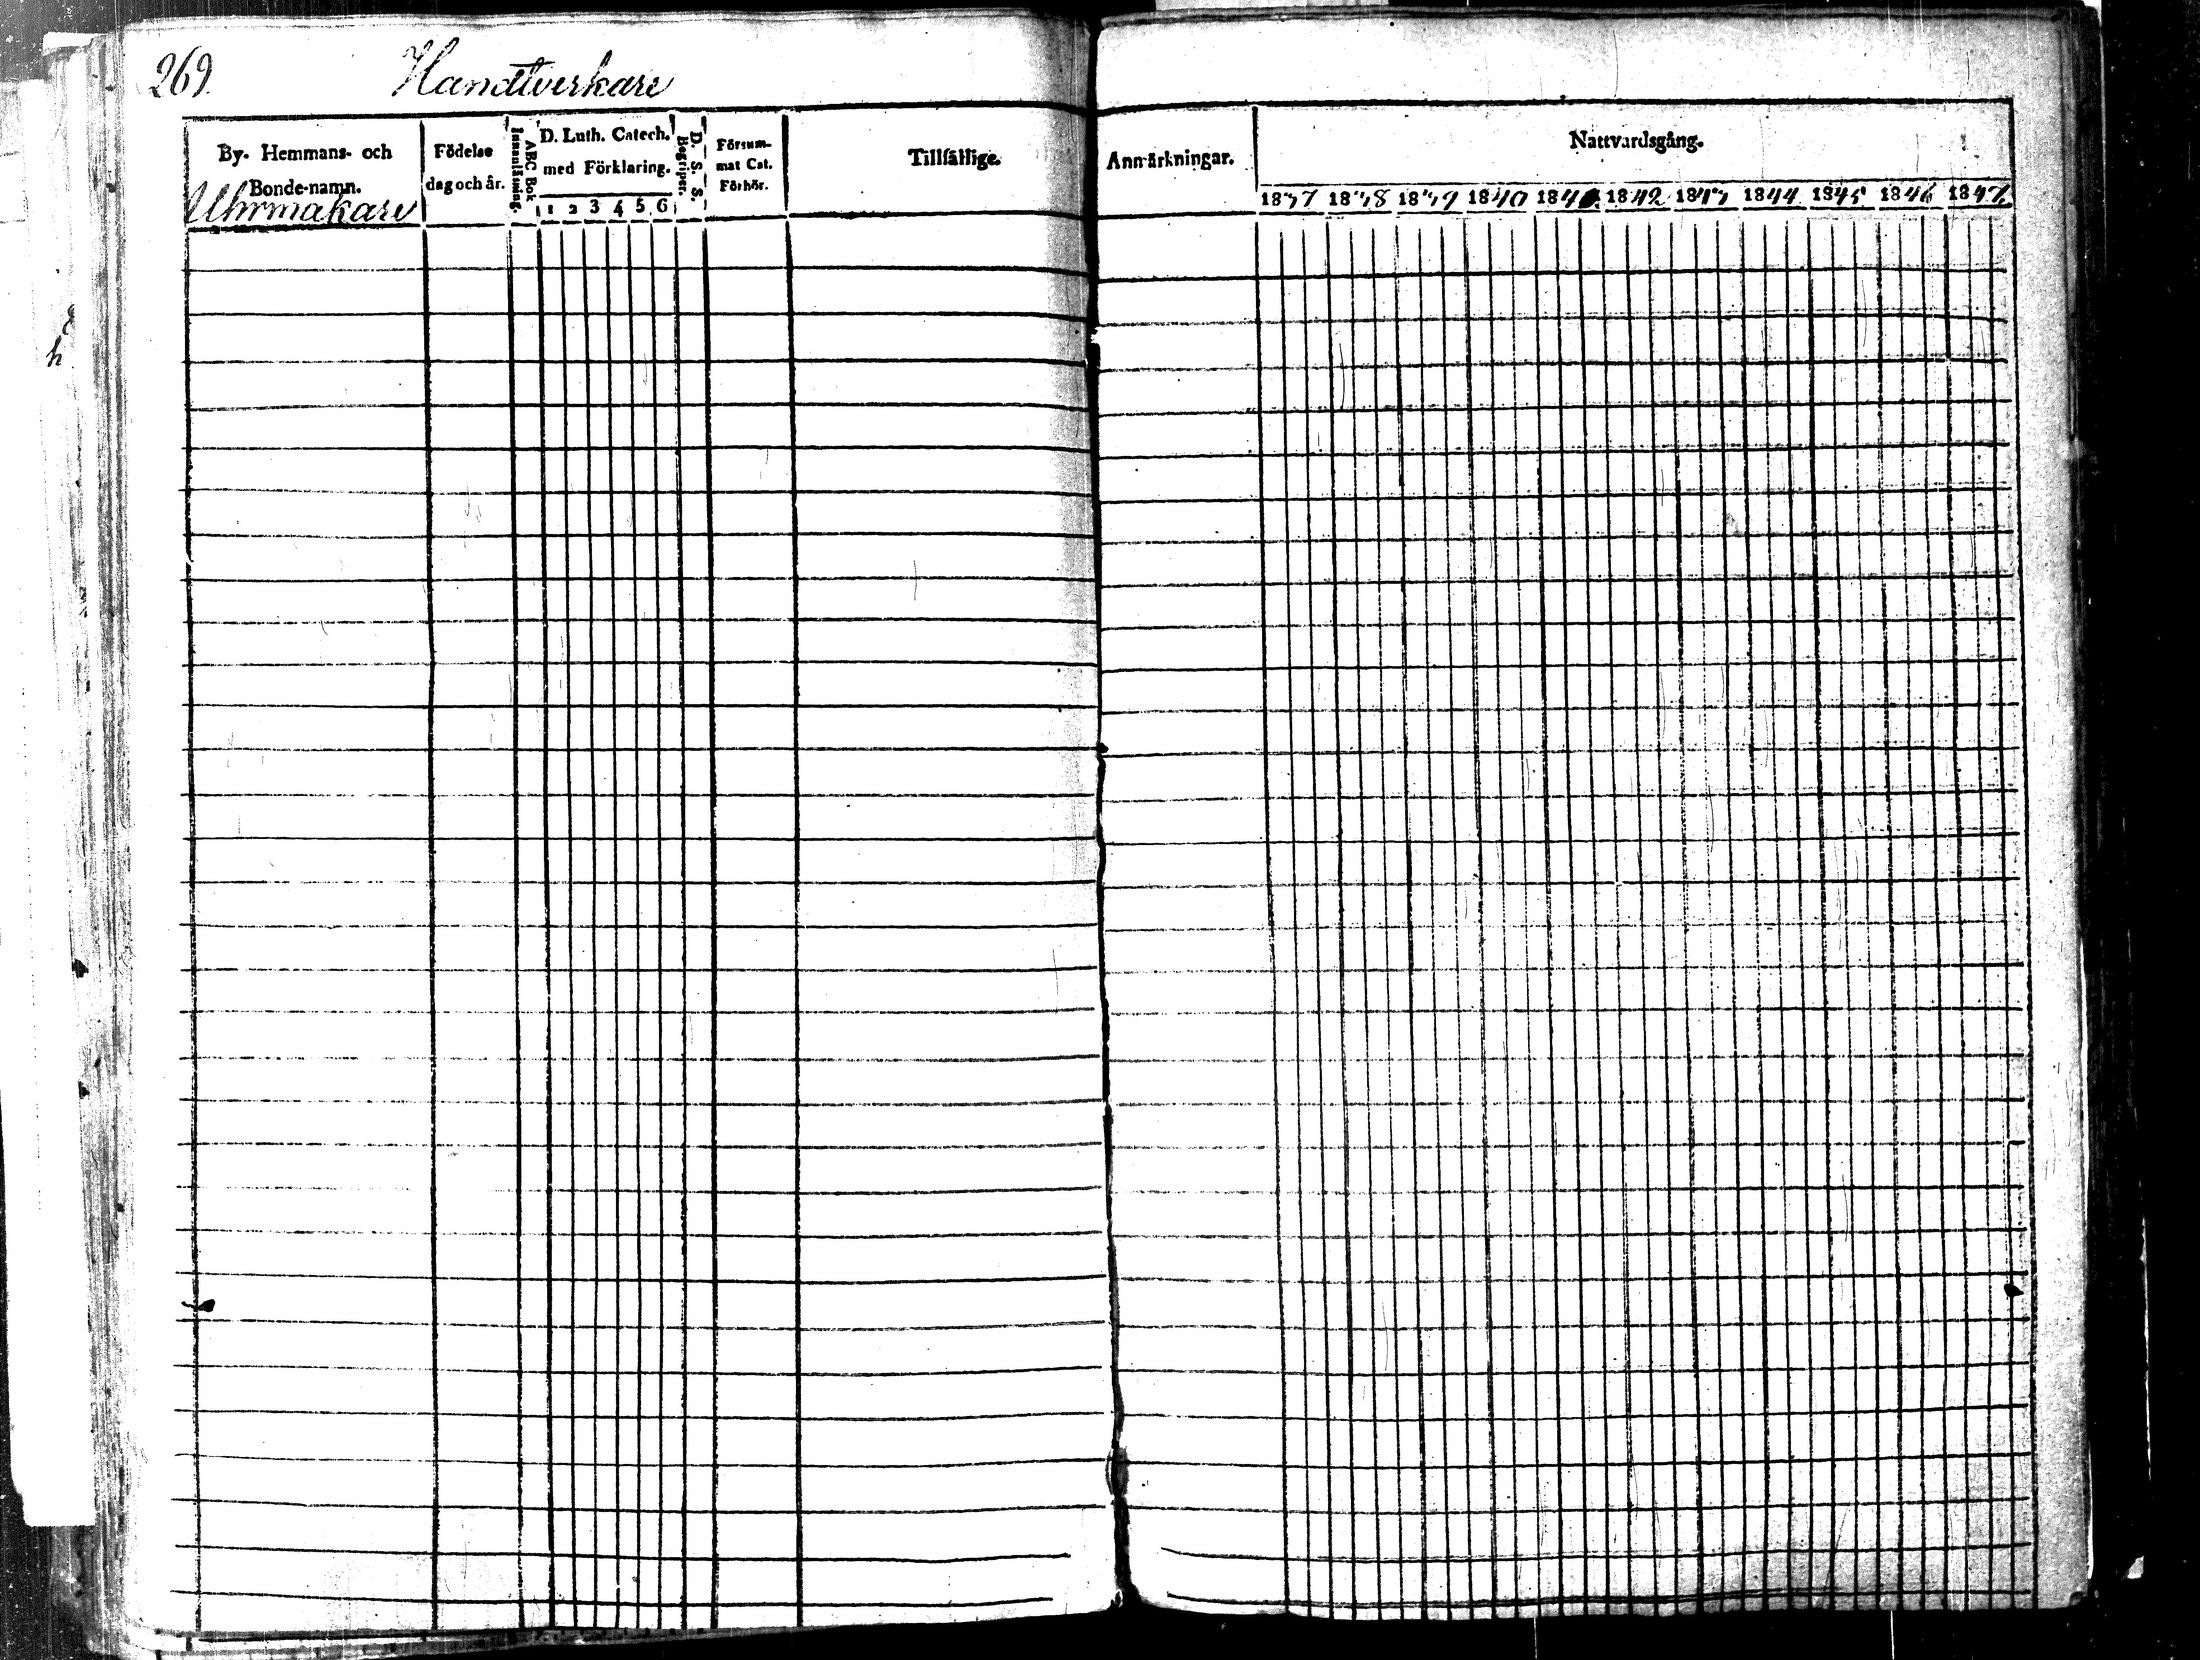 269.
Handtverkare
By. Hemmans- och
Bonde-namn.
Uhrmakare
Födelse
dag och år.
ABC Bok
Innanläsning.
D. Luth. Catech.
med Förklaring.
1 2 3 4 5 6
D. S. S.
Begriper.
Försum-
mat Cat.
Förhör.
Tillfällige
Anmärkningar.
Nattvardsgång.
1837 1838 1839 1840 1841 1842 1843 1844 1845 1846 1847
h